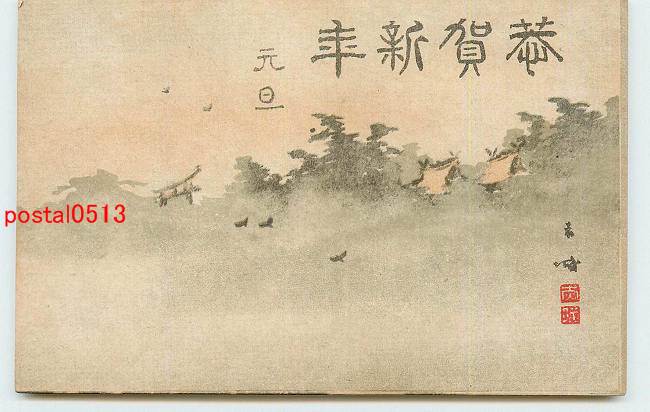 恭賀新年
元旦
postal0513